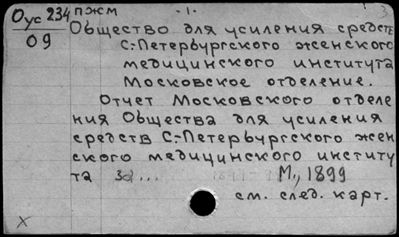 Оус 234 пжм -1- 3
09
Общество для усиления средств
С.-Петербургского женского
медицинского института
Московское отделение.
Отчет Московского отделе
ния Общества для усиления
средств С.-Петербургского жен
ского медицинского институ
та за... М., 1899
см. след. карт.
x